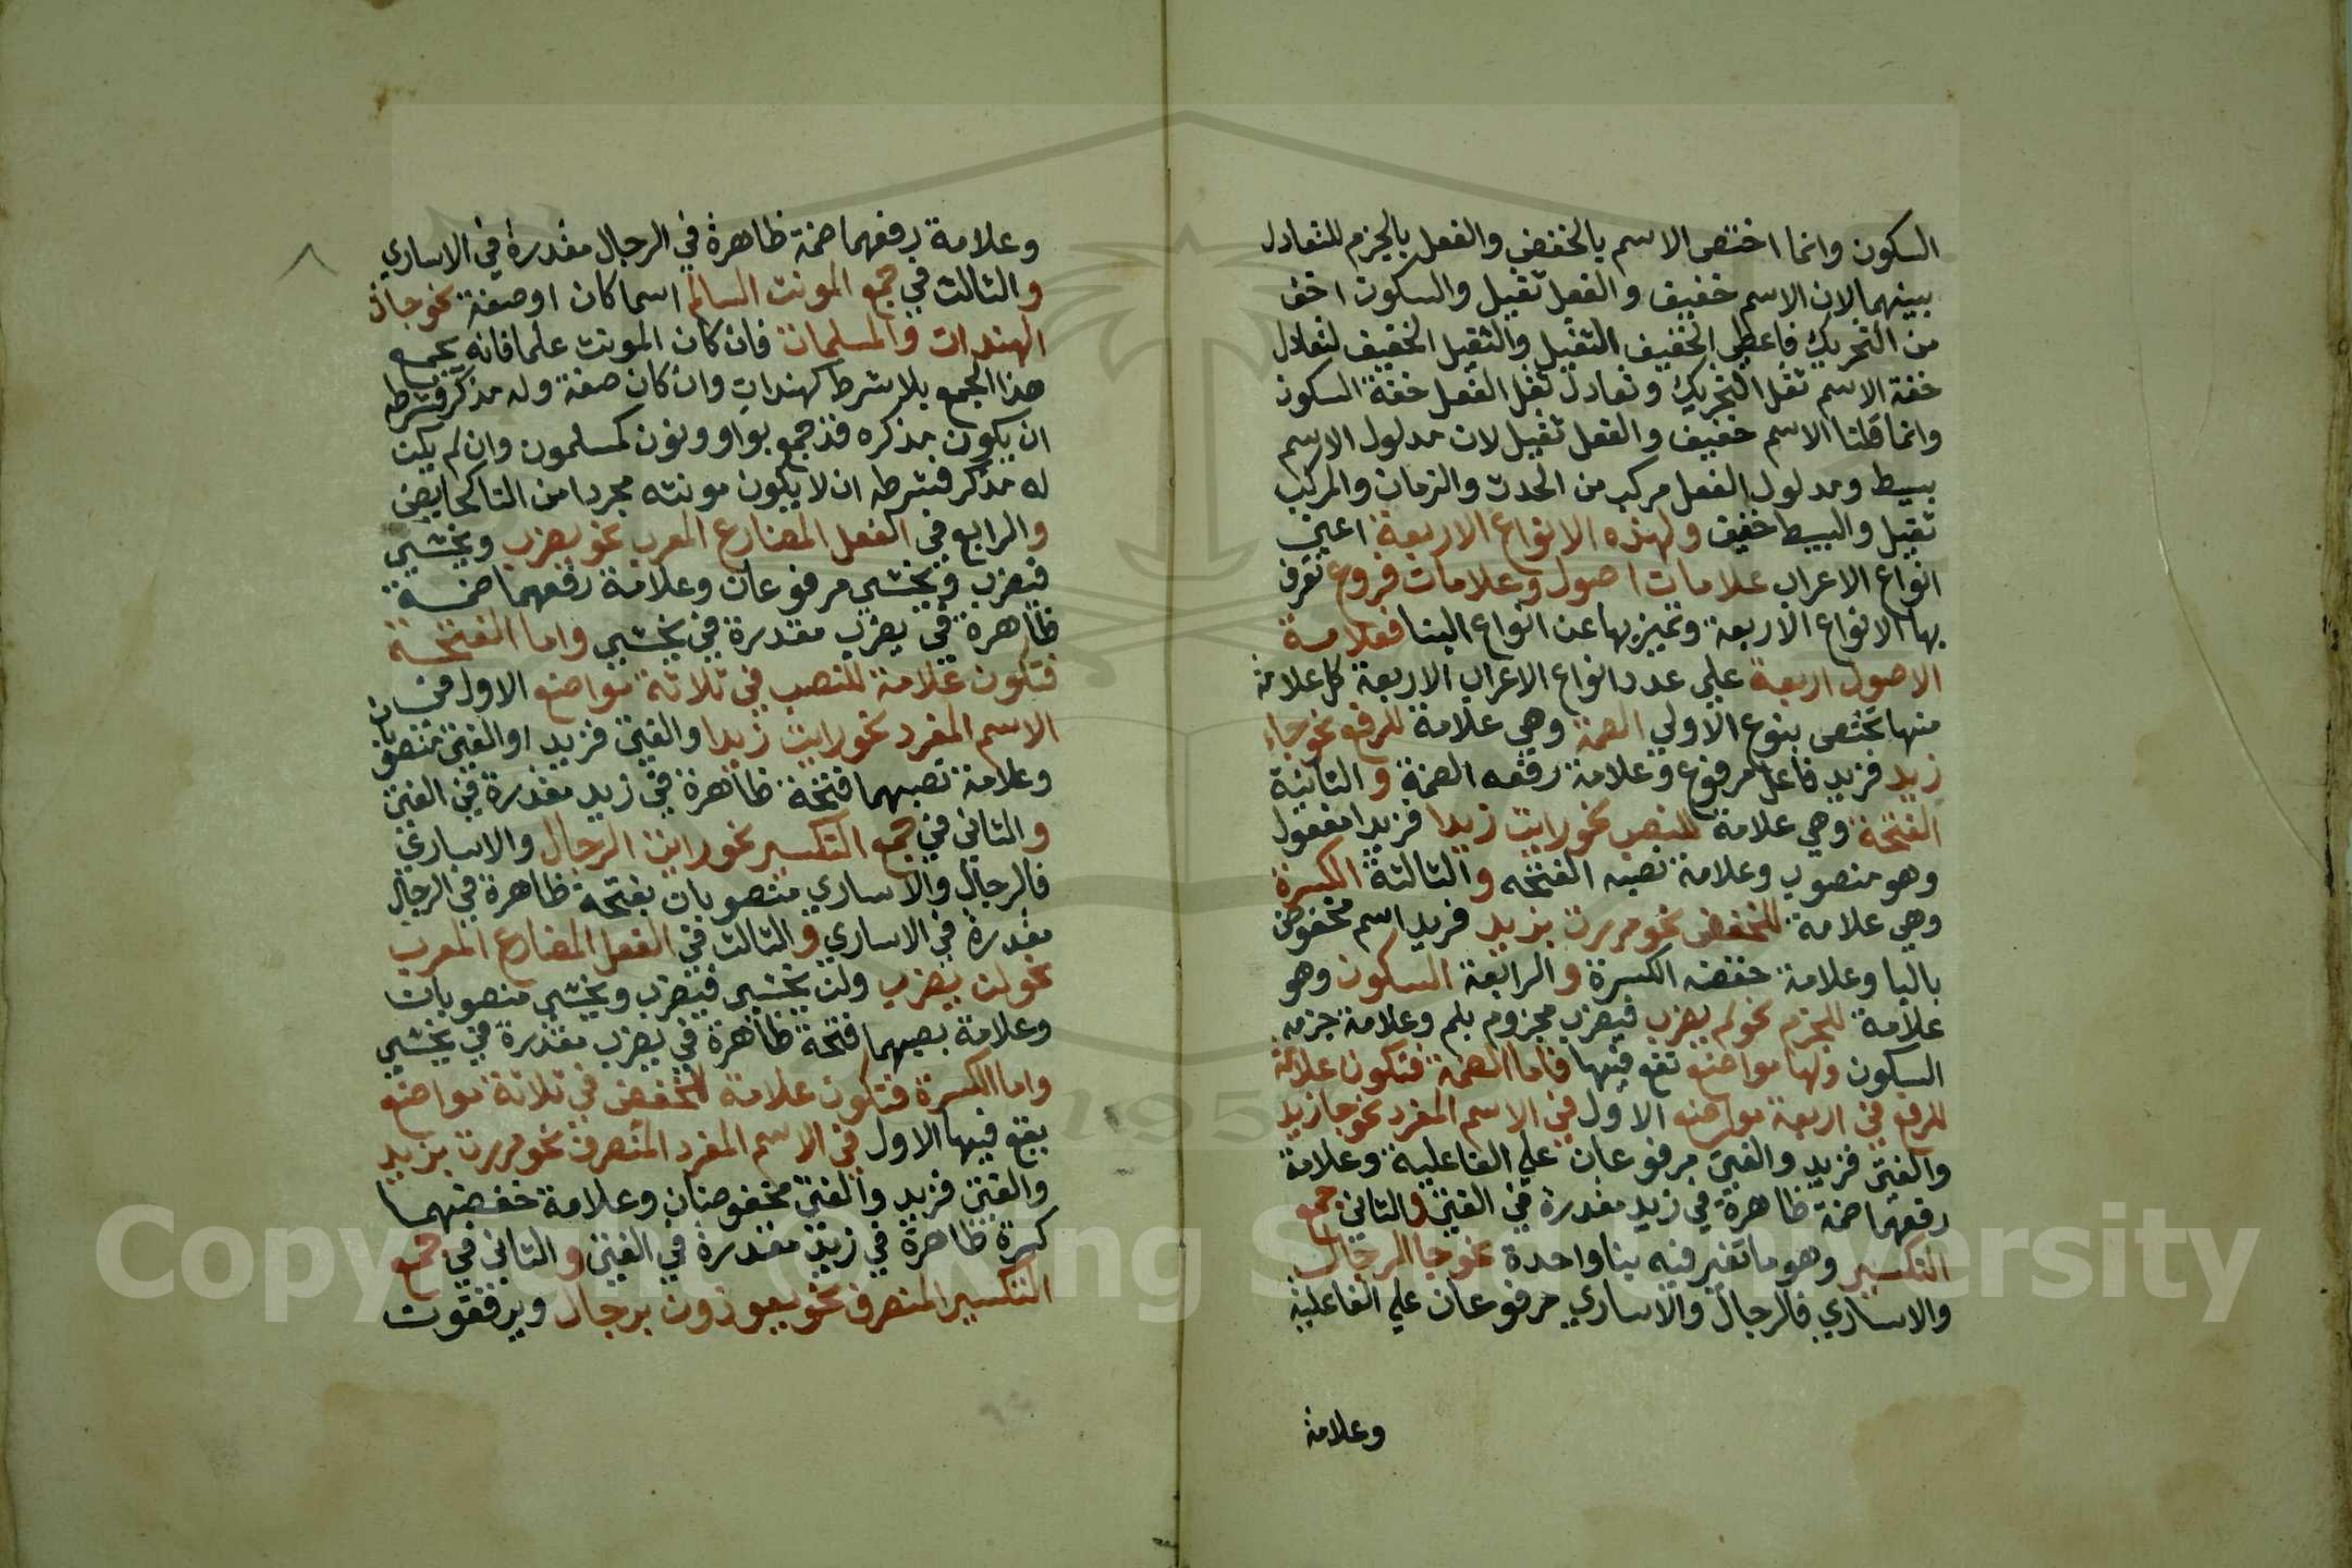 السكون وانما اختص الاسم بالخفض والفعل بالجزم للتعادل
بينهما لان الاسم خفيف والفعل ثقيل والسكون اخف
من التحريك فاعطي الخفيف الثقيل والثقيل الخفيف لتعادل
خفة الاسم ثقل التحريك وتعادل ثقل الفعل خفة السكون
وانما قلنا الاسم خفيف والفعل ثقيل لان مدلول الاسم
بسيط ومدلول الفعل مركب من الحدث والزمان والمركب
ثقيل والبسيط خفيف ولهذه الانواع الاربعة اعني
انواع الاعراب علامات اصول وعلامات فروع تعرف
بها الانواع الاربعة وتميز بها عن انواع البنا فعلامة
الاصول اربعة علي عدد انواع الاعراب الاربعة كل علامة
منها تختص بنوع الاولي الضمة وهي علامة للرفع نحو جاء
زيد فزيد فاعل مرفوع وعلامة رفعه الضمة والثانية
الفتحة وهي علامة للنصب نحو رايت زيدا فزيدا مفعول
وهو منصوب وعلامة نصبه الفتحه والثالثة الكسرة
وهي علامة للخفض نحو مررت بزيد فزيد اسم مخفوض
بالبا وعلامة خفضه الكسرة والرابعة السكون وهو
علامة للجزم نحو لم يضرب فيضرب مجزوم بلم وعلامة جزمه
السكون ولها مواضع تقع فيها فاما الضمة فتكون علامة
للرفع في اربعة مواضع الاول في الاسم المفرد نحو جا زيد
والفتي فزيد والفتي مرفوعان علي الفاعلية وعلامة
رفعهما ضمة ظاهرة في زيد مقدرة في الفتي والثاني جمع
التكسير وهو ما تغير فيه بنا واحدة نحو جا الرجال
والاساري فالرجال والاساري مرفوعان علي الفاعلية
وعلامة
وعلامة رفعهما ضمة ظاهرة في الرجال مقدرة في الاساري
والثالث في جمع المونث السالم اسما كان او صفة نحو جات
الهندات والمسلمات فان كان المونث علما فانه يجمع
هذا الجمع بلا شرط كهندات وان كان صفة وله مذكر فشرطه
ان يكون مذكره قد جمع بواو ونون كمسلمون وان لم يكن
له مذكر فشرطه ان لا يكون مونثه مجردا من التا كحايض
والرابع في الفعل المضارع المعرب نحو يضرب ويخشي
فيضرب ويخشي مرفوعان وعلامة رفعهما ضمة
ظاهرة في يضرب مقدرة في يخشي واما الفتحة
فتكون علامة للنصب في ثلاثة مواضع الاول في
الاسم المفرد نحو رايت زيدا والفتي فزيدا والفتي منصوبان
وعلامة نصبهما فتحة ظاهرة في زيد مقدرة في الفتي
والثاني في جمع التكسير نحو رايت الرجال والاساري
فالرجال والاساري منصوبان بفتحة ظاهرة في الرجال
مقدرة في الاساري والثالث في الفعل المضارع المعرب
نحو لن يضرب ولن يخشي فيضرب ويخشي منصوبان
وعلامة نصبهما فتحة ظاهرة في يضرب مقدرة في يخشي
واما الكسرة فتكون علامة للخفض في ثلاثة مواضع
يقع فيها الاول في الاسم المفرد المنصرف نحو مررت بزيد
والفتي فزيد والفتي مخفوضان وعلامة خفضهما
كسرة ظاهرة في زيد مقدرة في الفتي والثاني في جمع
التكسير المنصرف نحو يعوذون برجال ويرفقون
Copyright © King Saud University
195